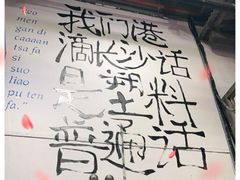 wo
men
gan di
caaan
tsa fa
si
suo
liao
pu ten
fa.”
我们港
滴长沙话
是塑料
普通话